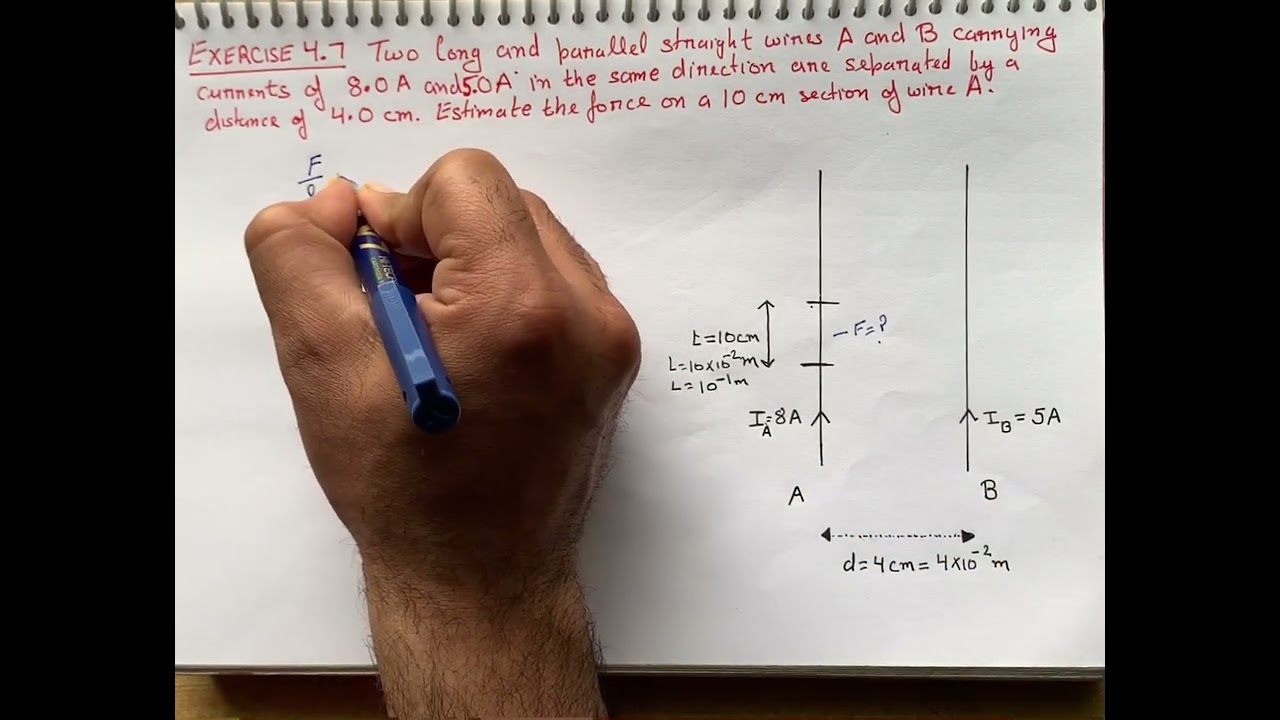 EXERCISE 4.7 Two long and parallel straight wires A and B carrying
currents of 8.0 A and 5.0 A in the same direction are separated by a
distance of 4.0 cm. Estimate the force on a 10 cm section of wire A.
F
L=10cm
L=10×10⁻²m
L=10⁻¹m
F=?
I_A=8A
I_B=5A
A
B
d=4cm=4×10⁻²m